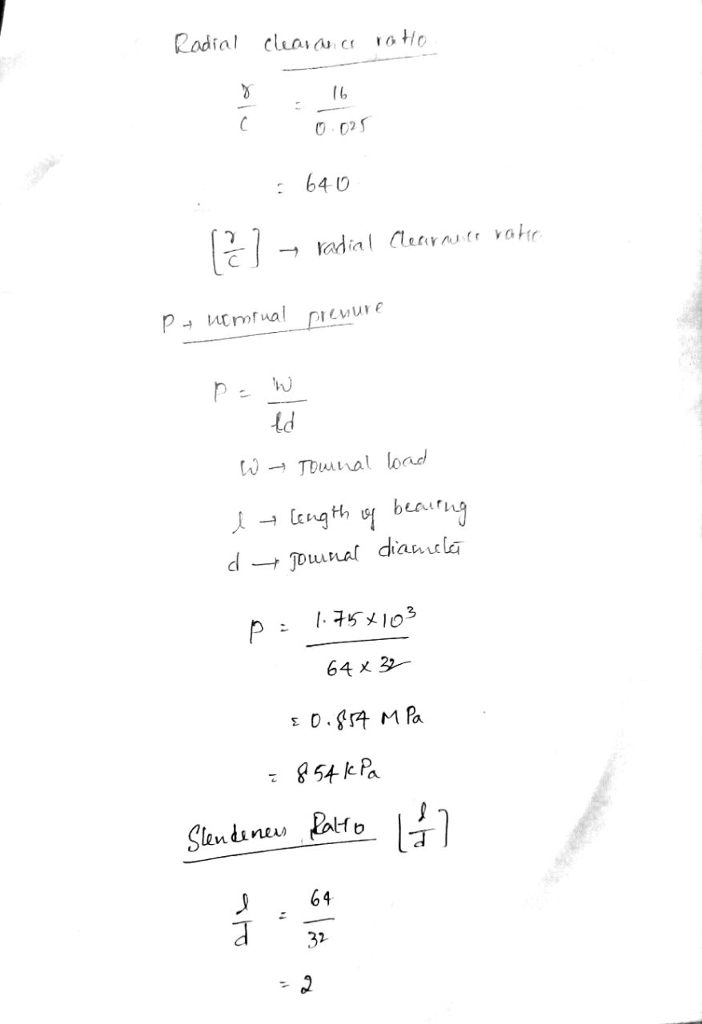 Radial clearance ratio
r/c = 16/0.025
= 640
[r/c] → radial clearance ratio
P → nominal pressure
P = W/ld
W → Journal load
l → length of bearing
d → Journal diameter
P = 1.75×10³/64 × 32
= 0.854 MPa
= 854 kPa
Slenderness Ratio [l/d]
l/d = 64/32
= 2